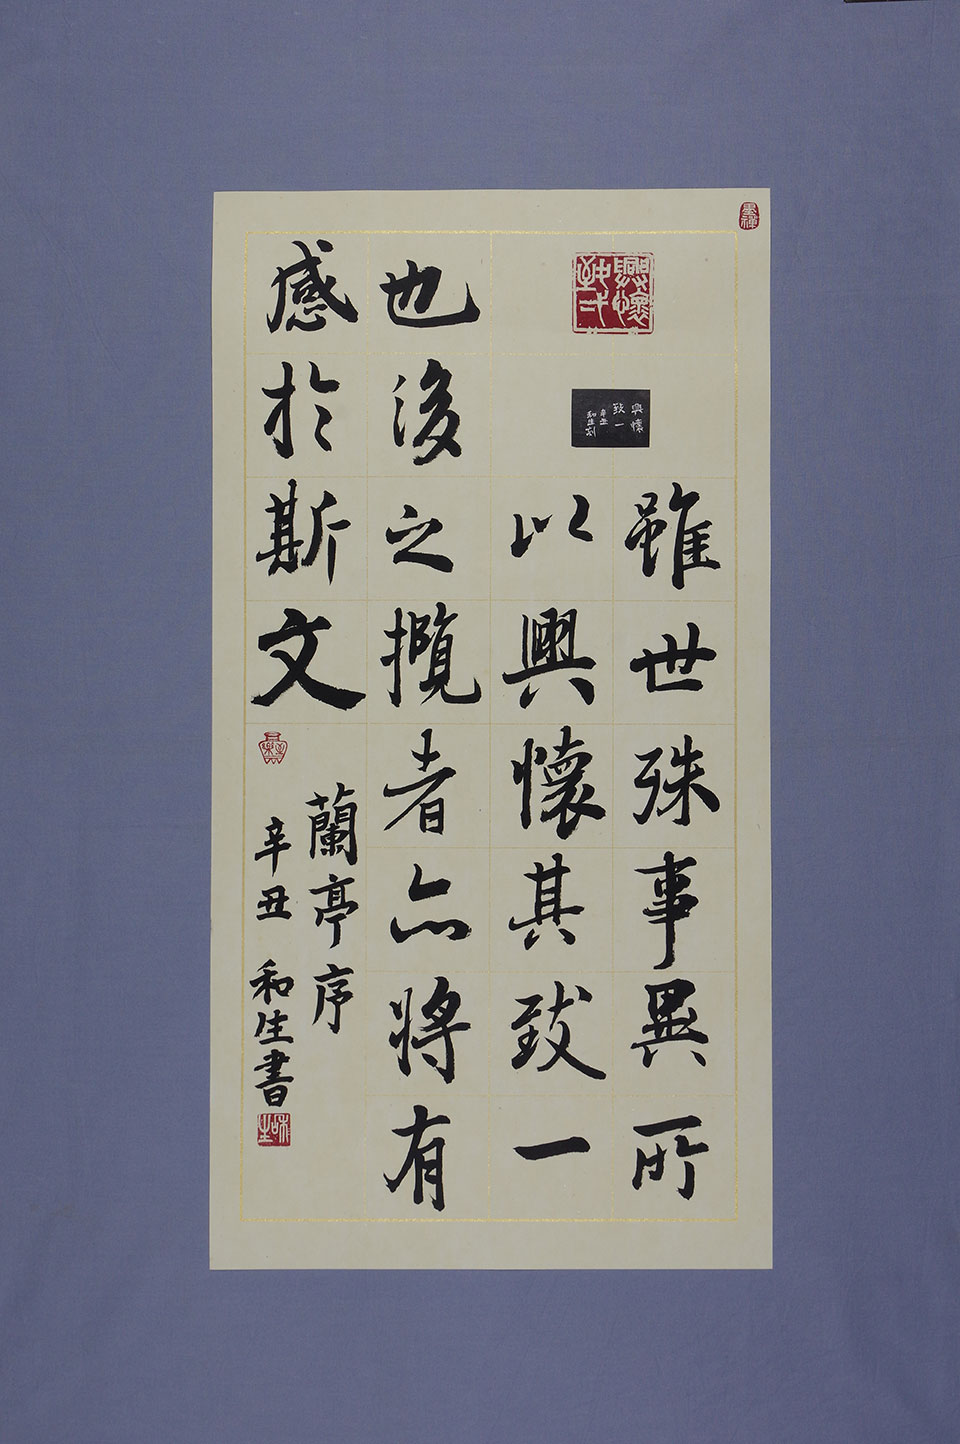 雖世殊事異所
以興懷其致一
也後之攬者亦將有
感於斯文
蘭亭序
辛丑 和生書
興懷致一
興懷
致一
辛丑
和生刻
和生